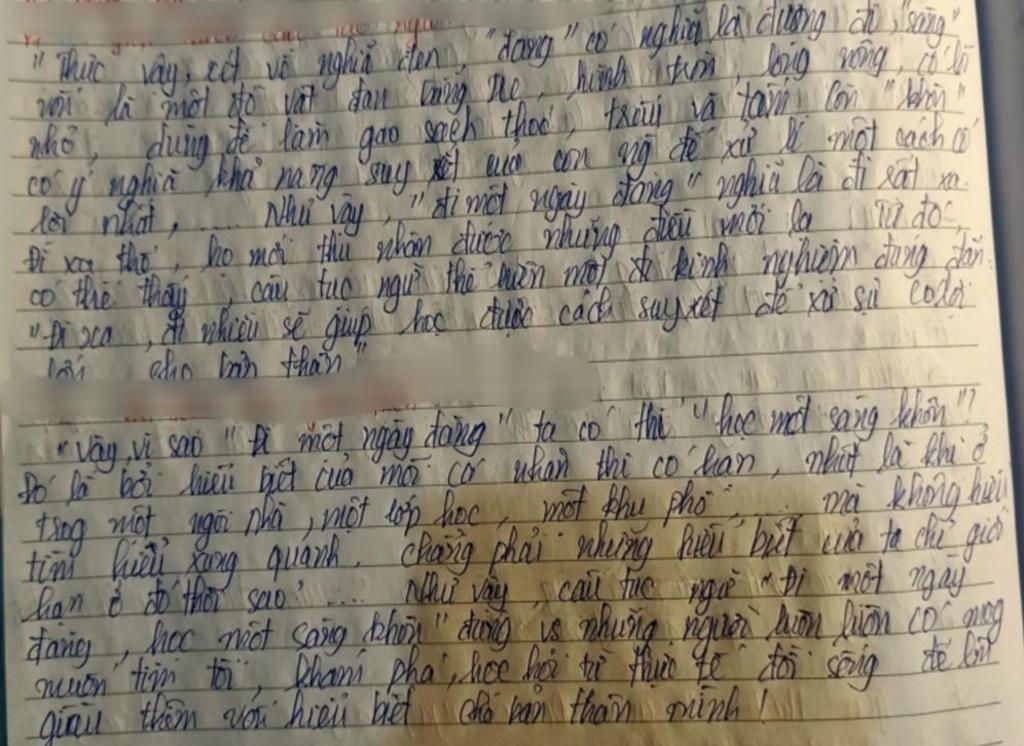 "Thực vậy, xét về nghĩa đen, "đàng" có nghĩa là đường đi, "sàng"
là một đồ vật đan bằng tre, hình tròn, lòng nông, có lỗ
nhỏ, dùng để làm gạo sạch thóc, trấu và tấm, còn "khôn"
có ý nghĩa khả năng suy xét của con ng để xử lí một cách có
lợi nhất, .... Như vậy, "đi một ngày đàng" nghĩa là đi rất xa.
Đi xa thế, họ mới thu nhận được những điều mới lạ. Từ đó,
có thể thấy, câu tục ngữ thể hiện một đk kinh nghiệm đúng đắn.
"Đi xa, đi nhiều sẽ giúp học được cách suy xét để xử sự có lợi
cho bản thân"
"Vậy, vì sao "Đi một ngày đàng" ta có thể "học một sàng khôn"?
Đó là bởi hiểu biết của mỗi cá nhân thì có hạn, nhất là khi ở
trog một ngôi nhà, một lớp học, một khu phố, .... mà không
tìm hiểu xung quanh. Chẳng phải những hiểu biết của ta chỉ giới
hạn ở đó thôi sao? .... Như vậy, câu tục ngữ "Đi một ngày
đàng, học một sàng khôn" đúng vs những người luôn luôn có mog
muốn tìm tòi, khám phá, học hỏi từ thực tế đời sống để
giàu thêm vốn hiểu biết cho bản thân mình!